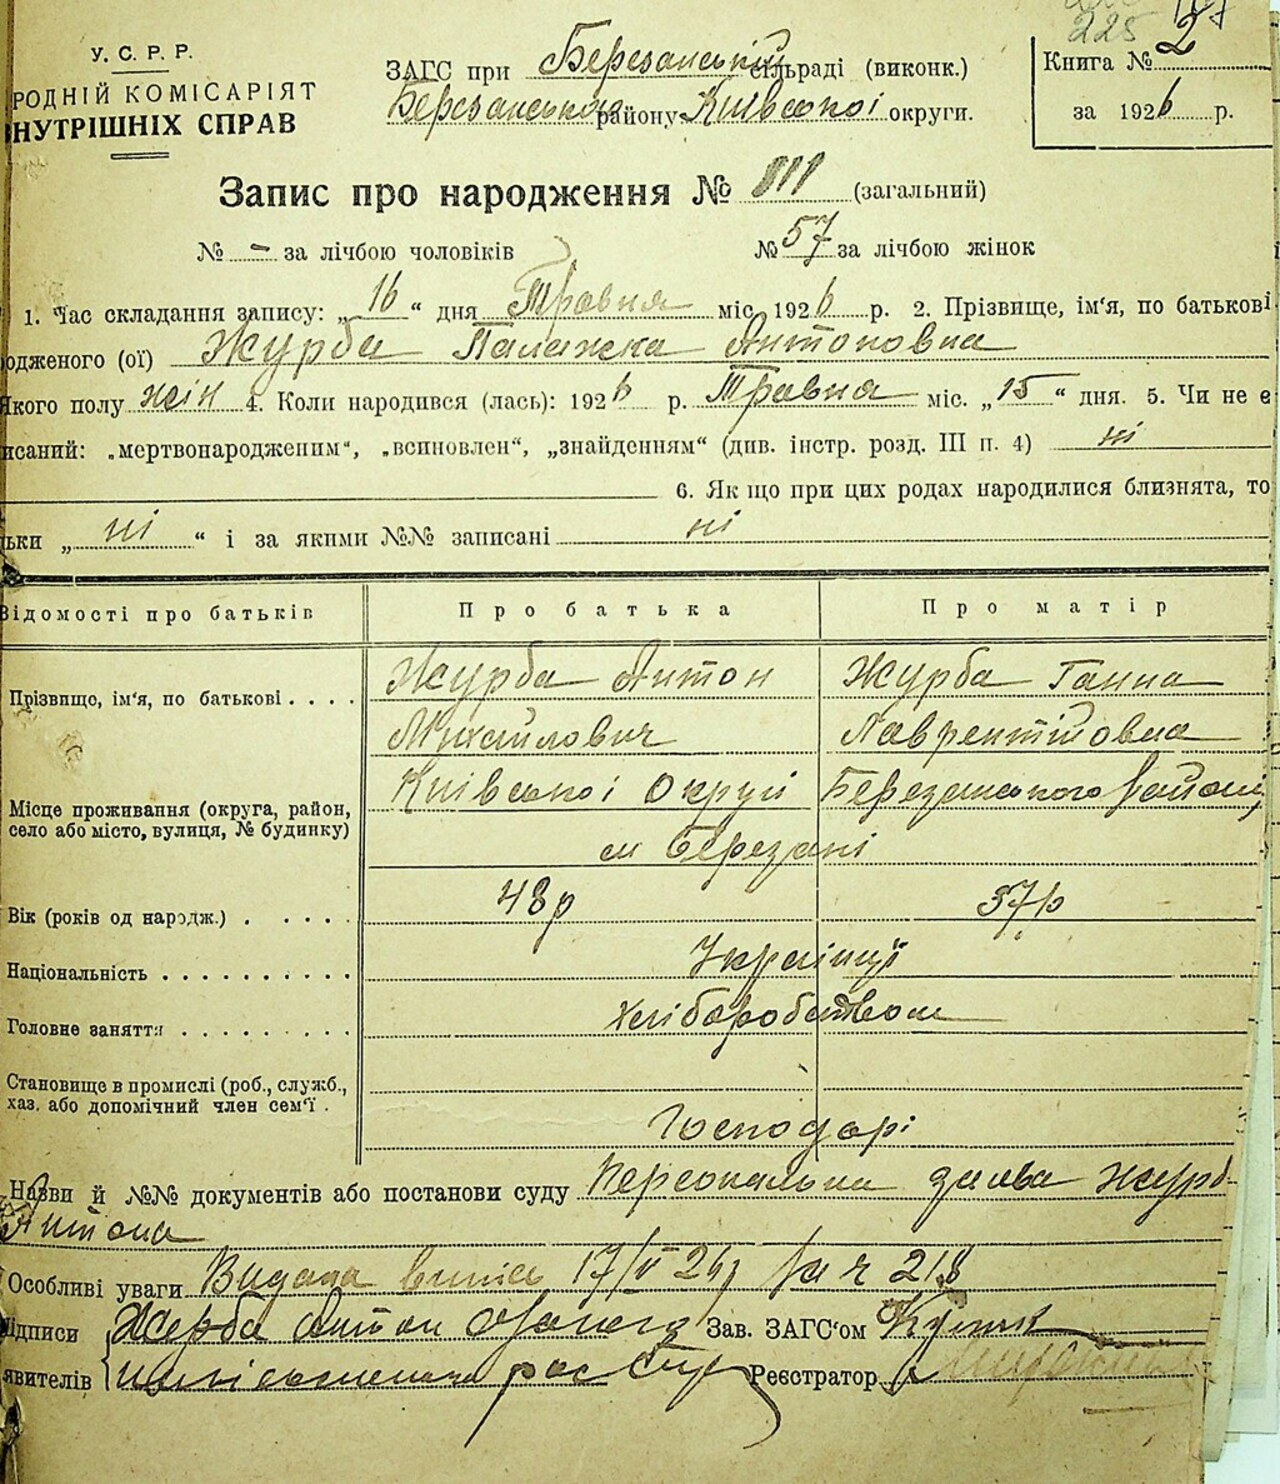 225
У. С. Р. Р.
РОДНІЙ КОМІСАРІЯТ
НУТРІШНІХ СПРАВ
ЗАГС при Березанській сільраді (виконк.)
Березанського району Київської округи.
Книга № 2
за 1926 р.
Запис про народження № 111 (загальний)
№ - за лічбою чоловіків № 57 за лічбою жінок
1. Час складання запису: „ 16 “ дня Травня міс. 1926 р. 2. Прізвище, ім‘я, по батькові
одженого (ої) Журба Палажка Антоновна
якого полу жін 4. Коли народився (лась): 1926 р. Травня міс. „ 15 “ дня. 5. Чи не є
исаний: „мертвонародженим“, „всиновлен“, „знайденням“ (див. інстр. розд. III п. 4) ні
6. Як що при цих родах народилися близнята, то
ьки „ ні “ і за якими №№ записані ні
Відомості про батьків Про батька Про матір
Прізвище, ім‘я, по батькові . . . . Журба Антон Журба Ганна
Михайлович Лаврентіїовна
Місце проживання (округа, район, село або місто, вулиця, № будинку) Київської Округи Березанського Району
м Березані
Вік (років од народж.) . . . . . 48 р 37 р
Національність . . . . . . . . . . Українці
Головне заняття . . . . . . . . . Хліборобством
Становище в промислі (роб., служб.,
хаз. або допомічний член сем‘ї .
Господарі
Назви й №№ документів або постанови суду Персональна заява Журб
Антона
Особливі уваги Видана випис 17/V 26 р за ч 218
ідписи Журба Антон Зав. ЗАГС‘ом
явителів Реєстратор